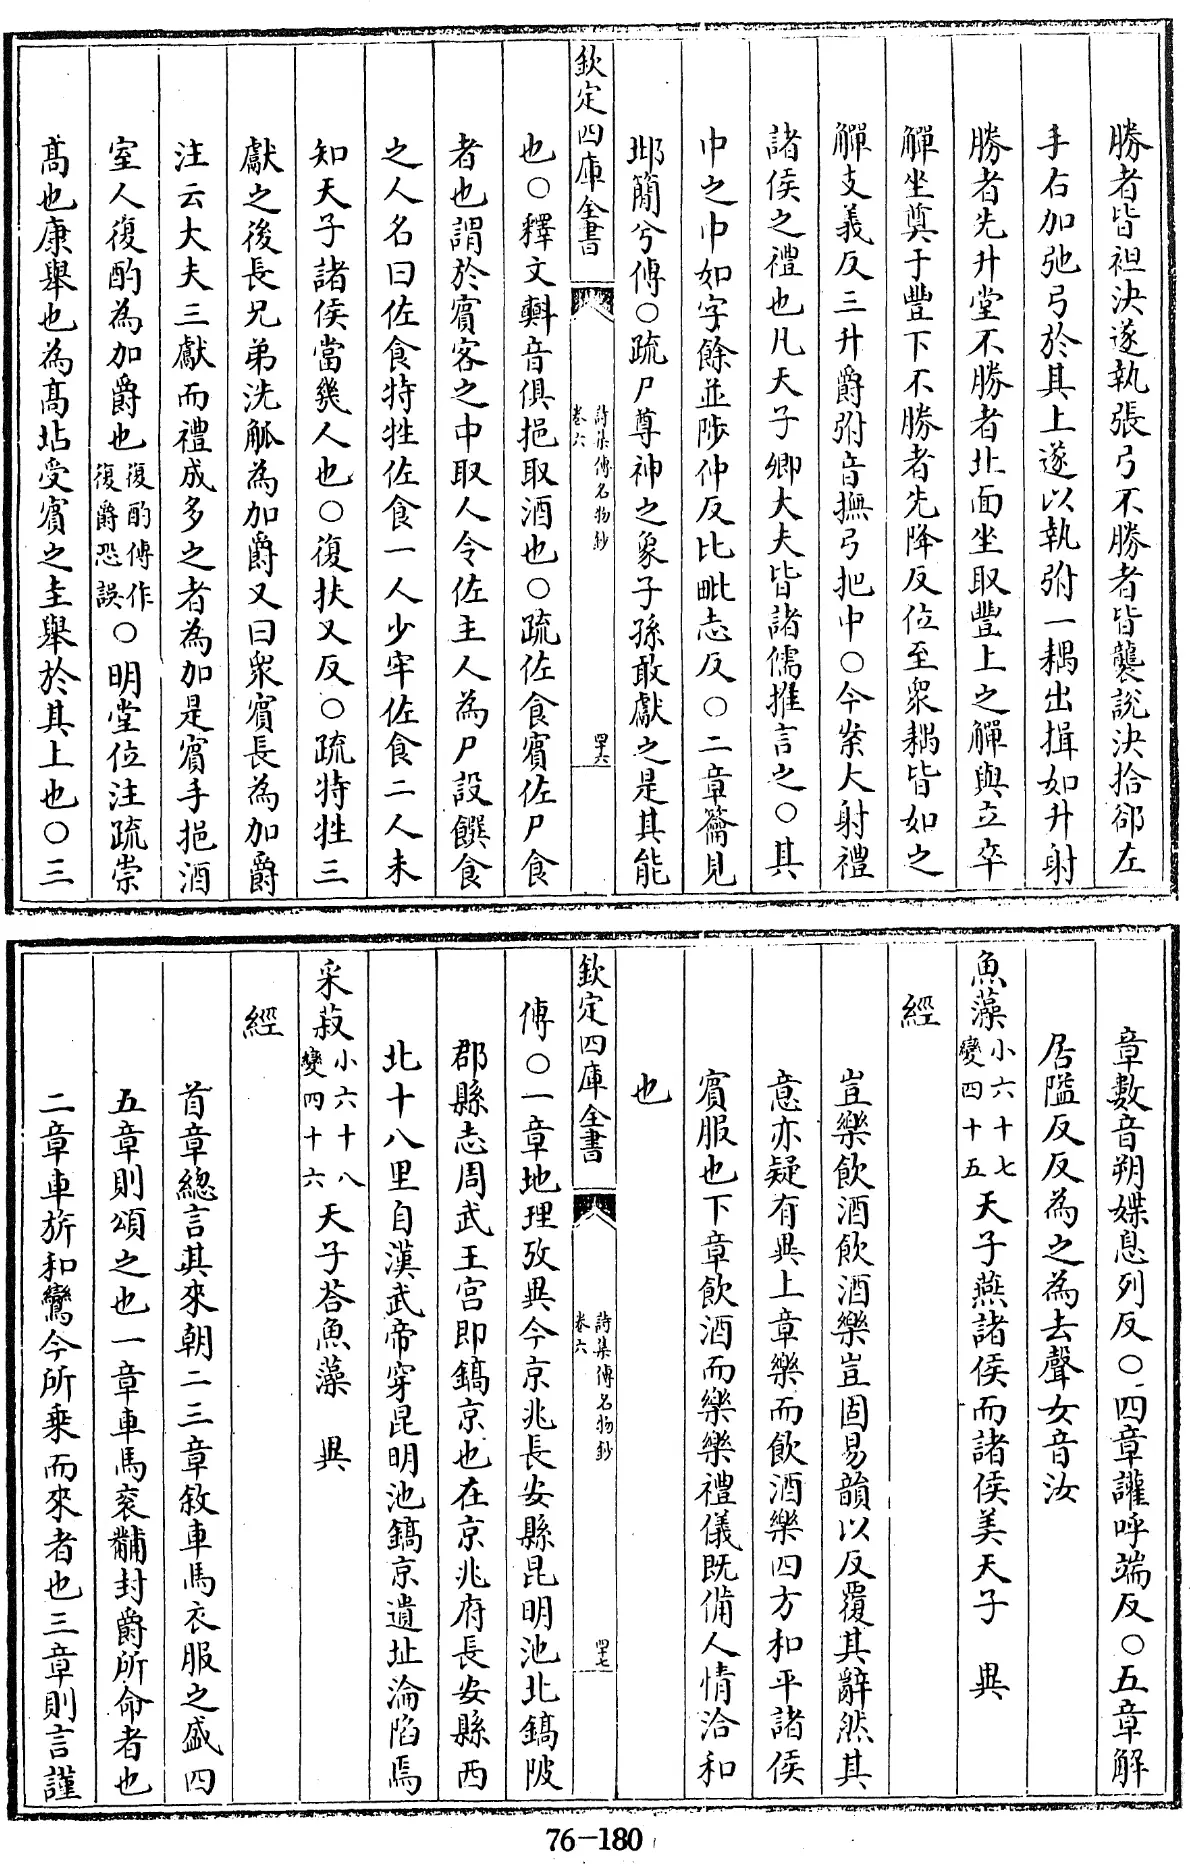 勝者皆袒決遂執張弓不勝者皆襲說決拾郤左
手右加弛弓於其上遂以執弣一耦出揖如升射
勝者先升堂不勝者北面坐取豐上之觶與立卒
觶坐奠于豐下不勝者先降反位至衆耦皆如之
觶支義反三升爵弣音撫弓把中〇今案大射禮
諸侯之禮也凡天子卿大夫皆諸儒推言之〇其
中之中如字餘並陟仲反比毗志反〇二章籥見
邶簡兮傳〇疏尸尊神之象子孫敢獻之是其能
欽定四庫全書
詩集傳名物鈔
卷六
四十六
也〇釋文㪺音俱挹取酒也〇疏佐食賓佐尸食
者也謂於賓客之中取人令佐主人為尸設饌食
之人名曰佐食特牲佐食一人少牢佐食二人未
知天子諸侯當幾人也〇復扶又反〇疏特牲三
獻之後長兄弟洗觚為加爵又曰衆賓長為加爵
注云大夫三獻而禮成多之者為加是賓手挹酒
室人復酌為加爵也復酌傳作復爵恐誤〇明堂位注疏崇
高也康舉也為高坫受賓之圭舉於其上也〇三
章數音朔媟息列反〇四章讙呼端反〇五章解
居隘反反為之為去聲女音汝
魚藻小六十七變四十五天子燕諸侯而諸侯美天子 興
經
豈樂飲酒飲酒樂豈固易韻以反覆其辭然其
意亦疑有異上章樂而飲酒樂四方和平諸侯
賓服也下章飲酒而樂樂禮儀既備人情洽和
也
欽定四庫全書
詩集傳名物鈔
卷六
四十七
傳〇一章地理攷異今京兆長安縣昆明池北鎬陂
郡縣志周武王宮即鎬京也在京兆府長安縣西
北十八里自漢武帝穿昆明池鎬京遺址淪陷焉
采菽小六十八變四十六天子荅魚藻 興
經
首章總言其來朝二三章敘車馬衣服之盛四
五章則頌之也一章車馬衮黼封爵所命者也
二章車旂和鸞今所乘而來者也三章則言謹
76-180